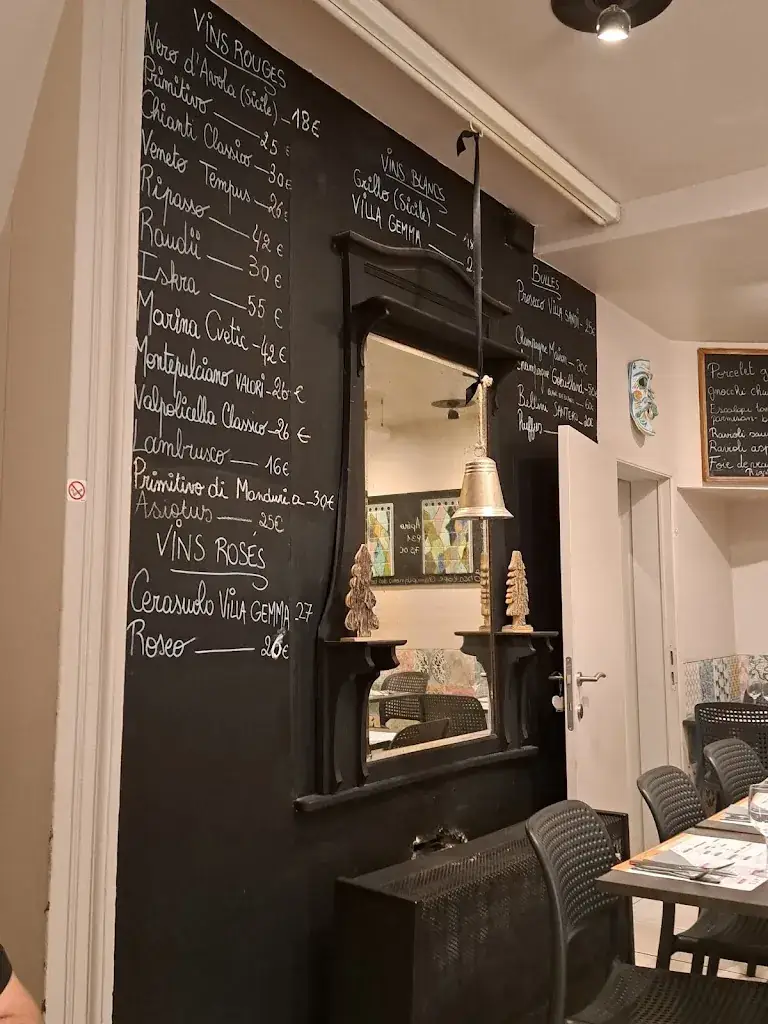 VINS ROUGES
Nero d'Avola (Sicile) — 18€
Primitivo — 25 €
Chianti Classico — 30€
Veneto Tempus — 26€
Ripasso — 42 €
Raudii — 30 €
Iskra — 55 €
Marina Cvetic — 42€
Montepulciano VALORI — 26 €
Valpolicella Classico — 26 €
Lambrusco — 16€
Primitivo di Manduria — 30€
Asiotus — 25€
VINS ROSÉS
Cerasuolo VILLA GEMMA 27
Roseo — 26€
VINS BLANCS
Grillo (Sicile) — 18
VILLA GEMMA —
BULLES
Prosecco VILLA SANDI — 25€
Champagne Maison — 30€
Champagne Gobillard —
Bellini SANTERO —
Ruffino
Porcelet
Gnocchi
Escalope
Ravioli
Ravioli
Foie de veau